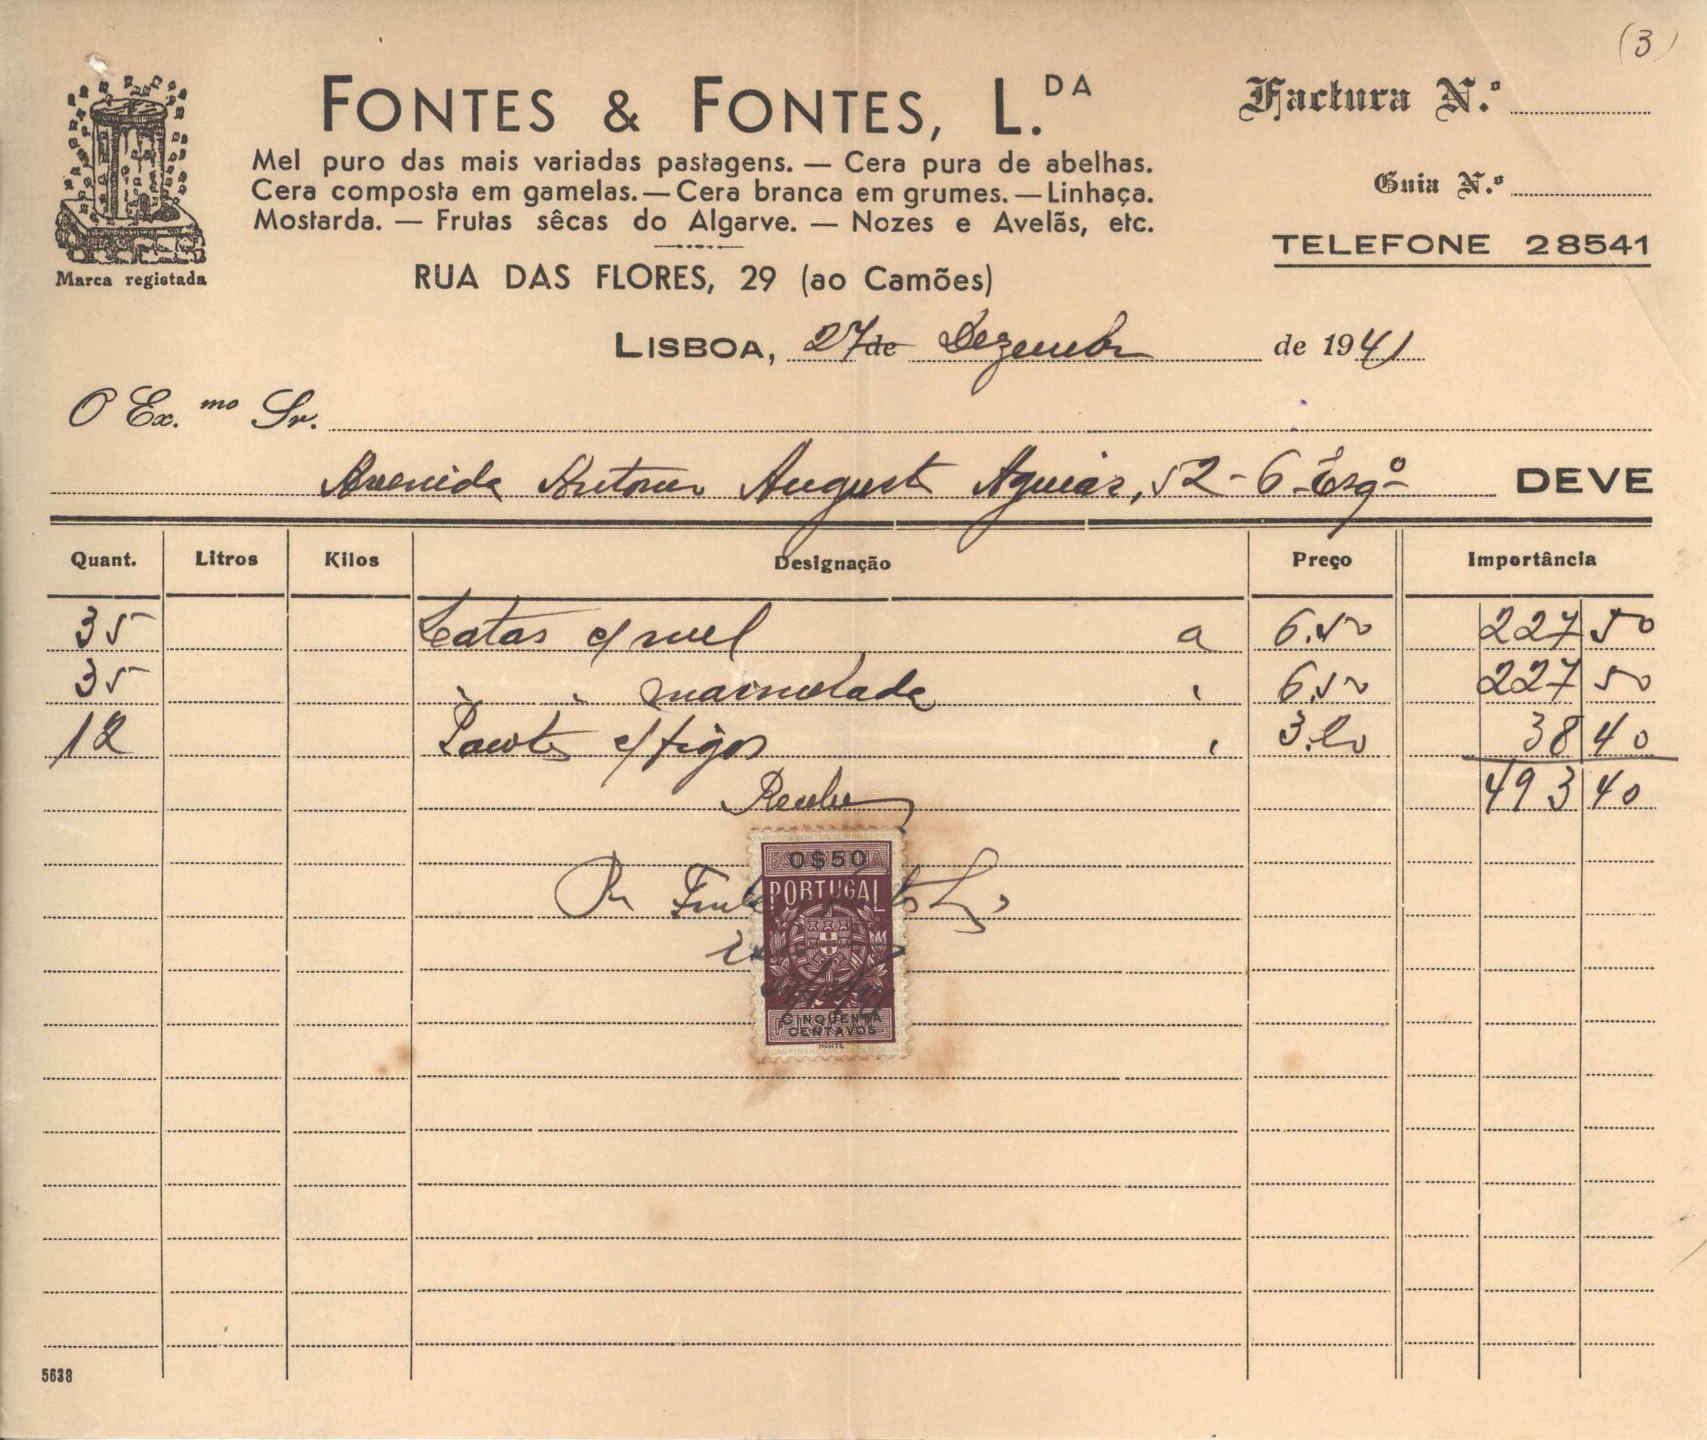 (3)
FONTES & FONTES, L.DA
Factura N.º
Mel puro das mais variadas pastagens. — Cera pura de abelhas.
Cera composta em gamelas. — Cera branca em grumes. — Linhaça.
Mostarda. — Frutas sêcas do Algarve. — Nozes e Avelãs, etc.
Guia N.º
TELEFONE 28541
Marca registada
RUA DAS FLORES, 29 (ao Camões)
LISBOA, 27 de Dezembro de 1941
O Ex.mo Sr.
Avenida Antonio Augusto Aguiar, 52-6-Esqº DEVE
Quant. Litros Kilos Designação Preço Importância
35 Latas c/ mel a 6.50 227 50
35 " " marmelada " 6.50 227 50
12 Pacotes c/ figos " 3.20 38 40
493 40
Recebemos
0$50
PORTUGAL
CINQUENTA
CENTAVOS
5638